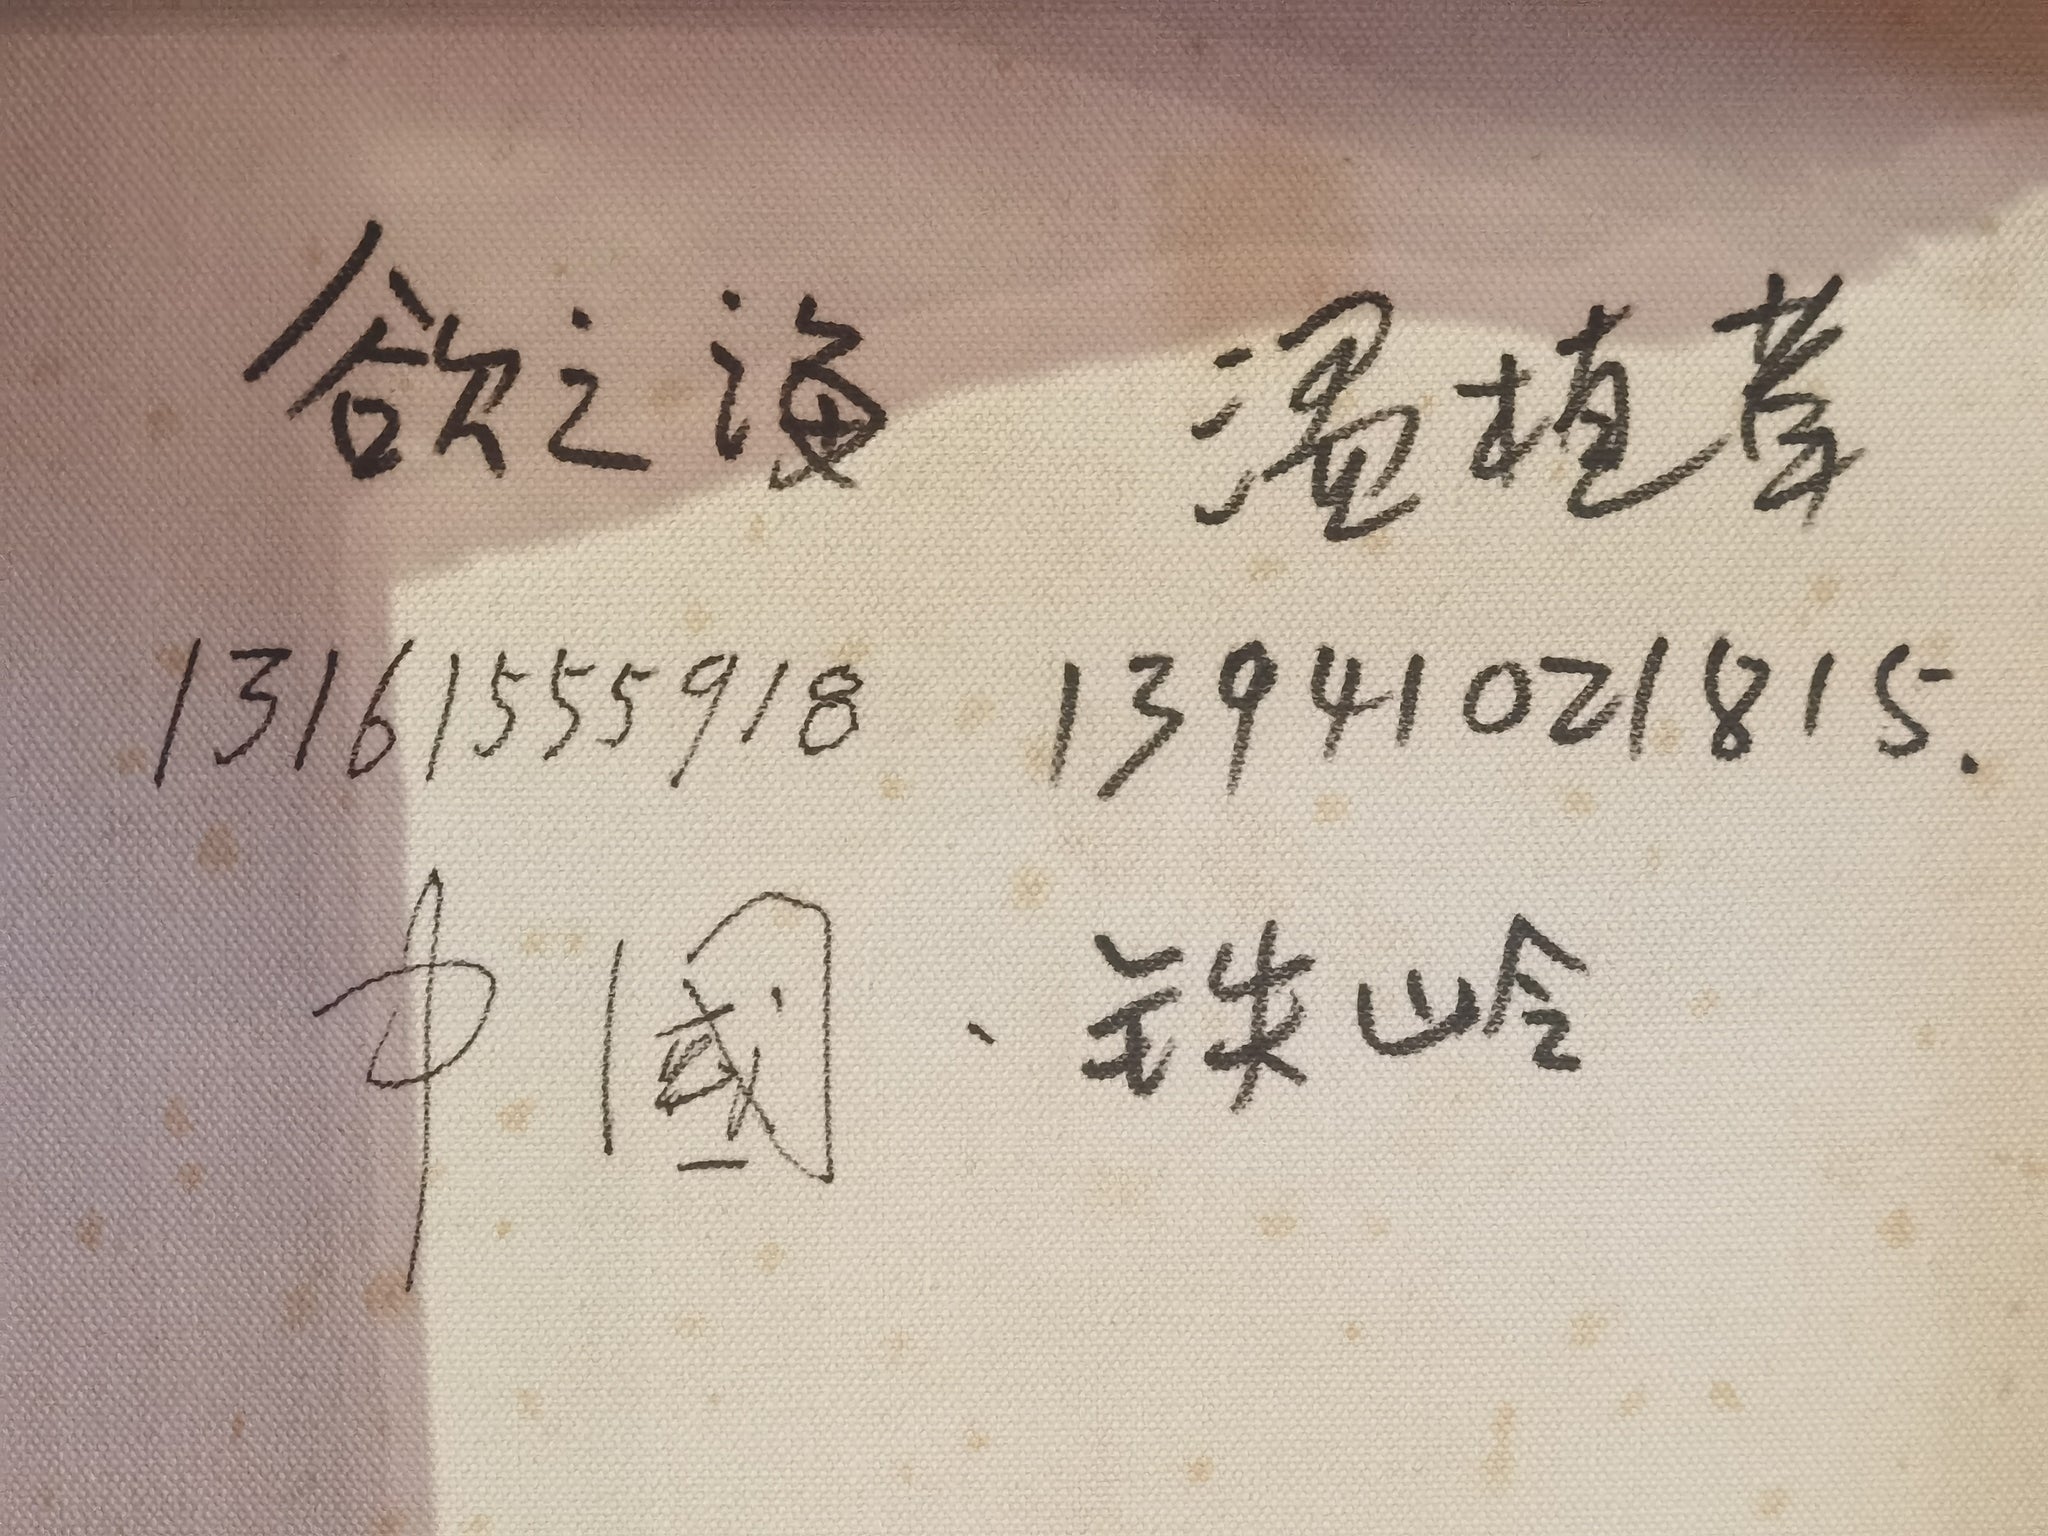 欲之海 温植茸
13161555918 13941021815.
中國、铁岭